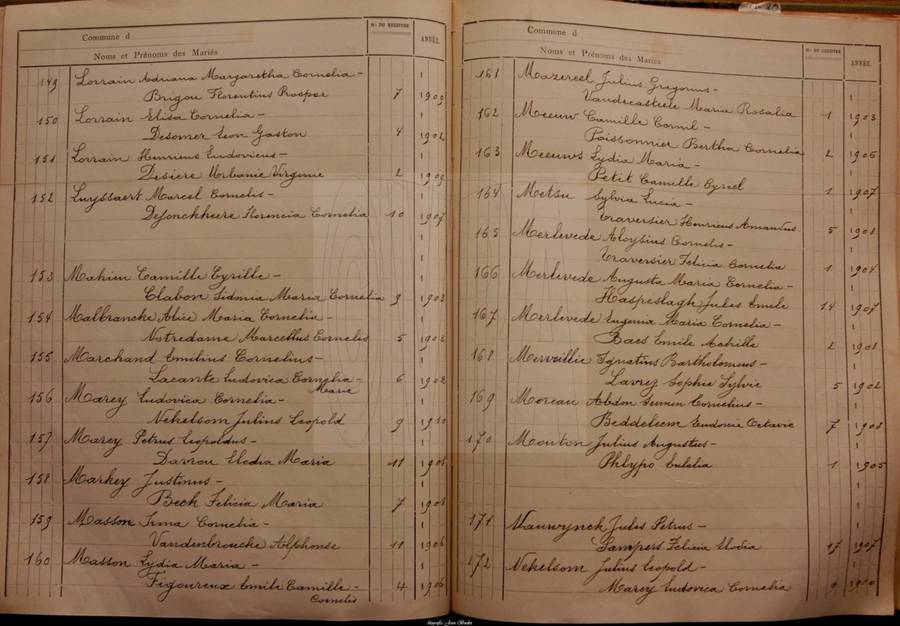 Commune d
Nos DU REGISTRE
ANNÉE.
Noms et Prénoms des Mariés
149 Lorrain Adriana Margaretha Cornelia -
Brigou Florentius Prosper 7 1909
150 Lorrain Elisa Cornelia -
Desomer Leon Gaston 4 1902
151 Lorrain Henricus Ludovicus -
Desiere Urbanie Virginie 2 1909
152 Luyssaert Marcel Cornelis -
Dejonckheere Florencia Cornelia 10 1907
153 Mahieu Camille Cyrille -
Clabou Sidonia Maria Cornelia 9 1903
154 Malbrancke Alice Maria Cornelia -
Notredame Marcellus Cornelis 5 1903
155 Marchand Emilius Cornelius -
Lacante Ludovica Cornelia - 6 1902
Maria
156 Marey Ludovica Cornelia -
Nekelsom Julius Leopold 9 1910
157 Marey Petrus Leopoldus -
Davrou Elodia Maria 11
158 Markey Justinus -
Beck Felicia Maria 7
159 Masson Irma Cornelia -
Vandenbroucke Alphonse 11 1906
160 Masson Lydia Maria -
Figoureux Emile Camille - 4 1906
Cornelis
Commune d
Nos DU REGISTRE
ANNÉE.
Noms et Prénoms des Mariés
161 Mazereel Julius Gregorius -
Vandecasteele Maria Rosalia 1 1903
162 Meeuw Camille Cornil -
Poissonnier Bertha Cornelia 2 1906
163 Meeuws Lydia Maria -
Petit Camille Cyriel 1 1907
164 Metsu Sylvia Lucia -
Traversier Henricus Amandus 5
165 Merlevede Aloysius Cornelis -
Traversier Felicia Cornelia 1 1904
166 Merlevede Augusta Maria Cornelia -
Haspeslagh Jules Emile 14 1907
167 Merlevede Eugenia Maria Cornelia -
Baes Emile Achille 2
168 Merveillie Ignatius Bartholomeus -
Lavrey Sophie Sylvie 5 1902
169 Moreau Abdon Cornelius -
Beddeleem Eudonie Octavie 7
170 Mouton Julius Augustus -
Phlypo Eulalia 1 1905
171 Nauwynck Jules Petrus -
Lampers Felicia Elodia 17 1907
172 Nekelsom Julius Leopold -
Marey Ludovica Cornelia 9 1910